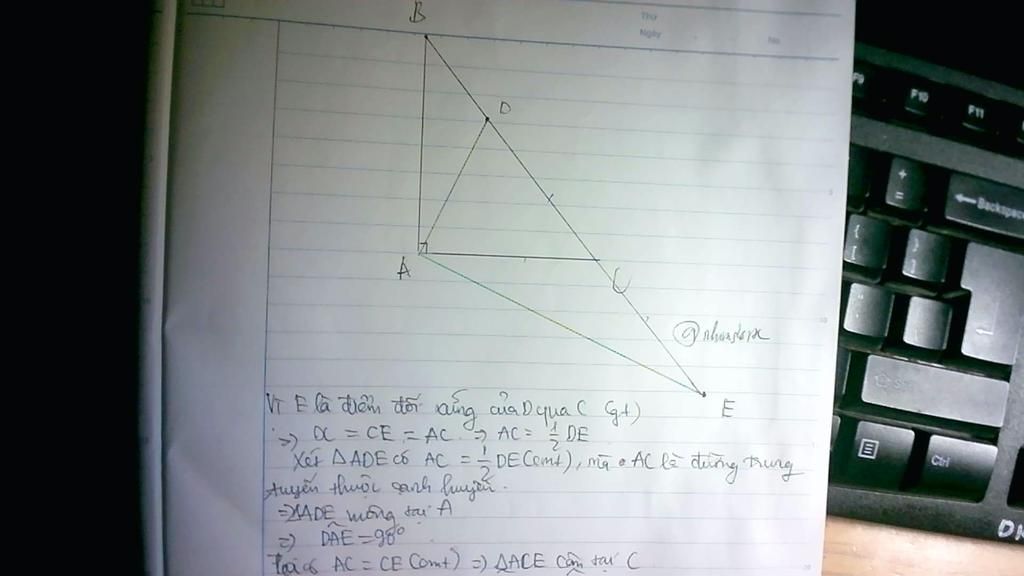 Thứ
Ngày No
B
D
A
C
E
Vì E là điểm đối xứng của D qua C (gt)
=> DC = CE = AC => AC = 1/2 DE
Xét ΔADE có AC = 1/2 DE (cmt), mà AC là đường trung
tuyến thuộc cạnh huyền.
=> ΔADE vuông tại A
=> DAE = 90°
Lại có AC = CE (cmt) => ΔACE cân tại C
F9 F10 F11
+
=
← Backspace
{
[
}
]
Ctrl